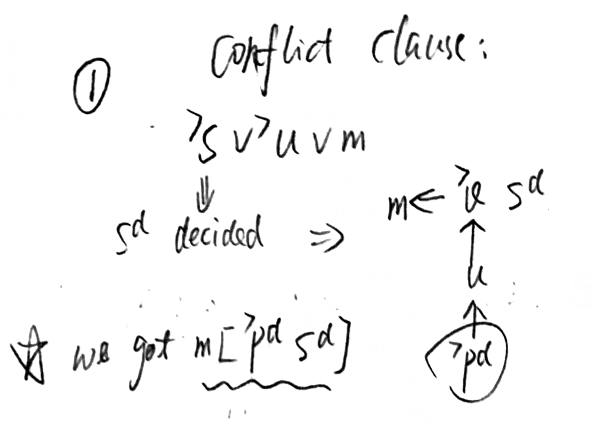 ① Conflict clause:
¬s ∨ ¬u ∨ m
⇓
s^d decided ⇒
m ← ¬q s^d
↑
u
↑
¬p^d
☆ we got m[¬p^d s^d]